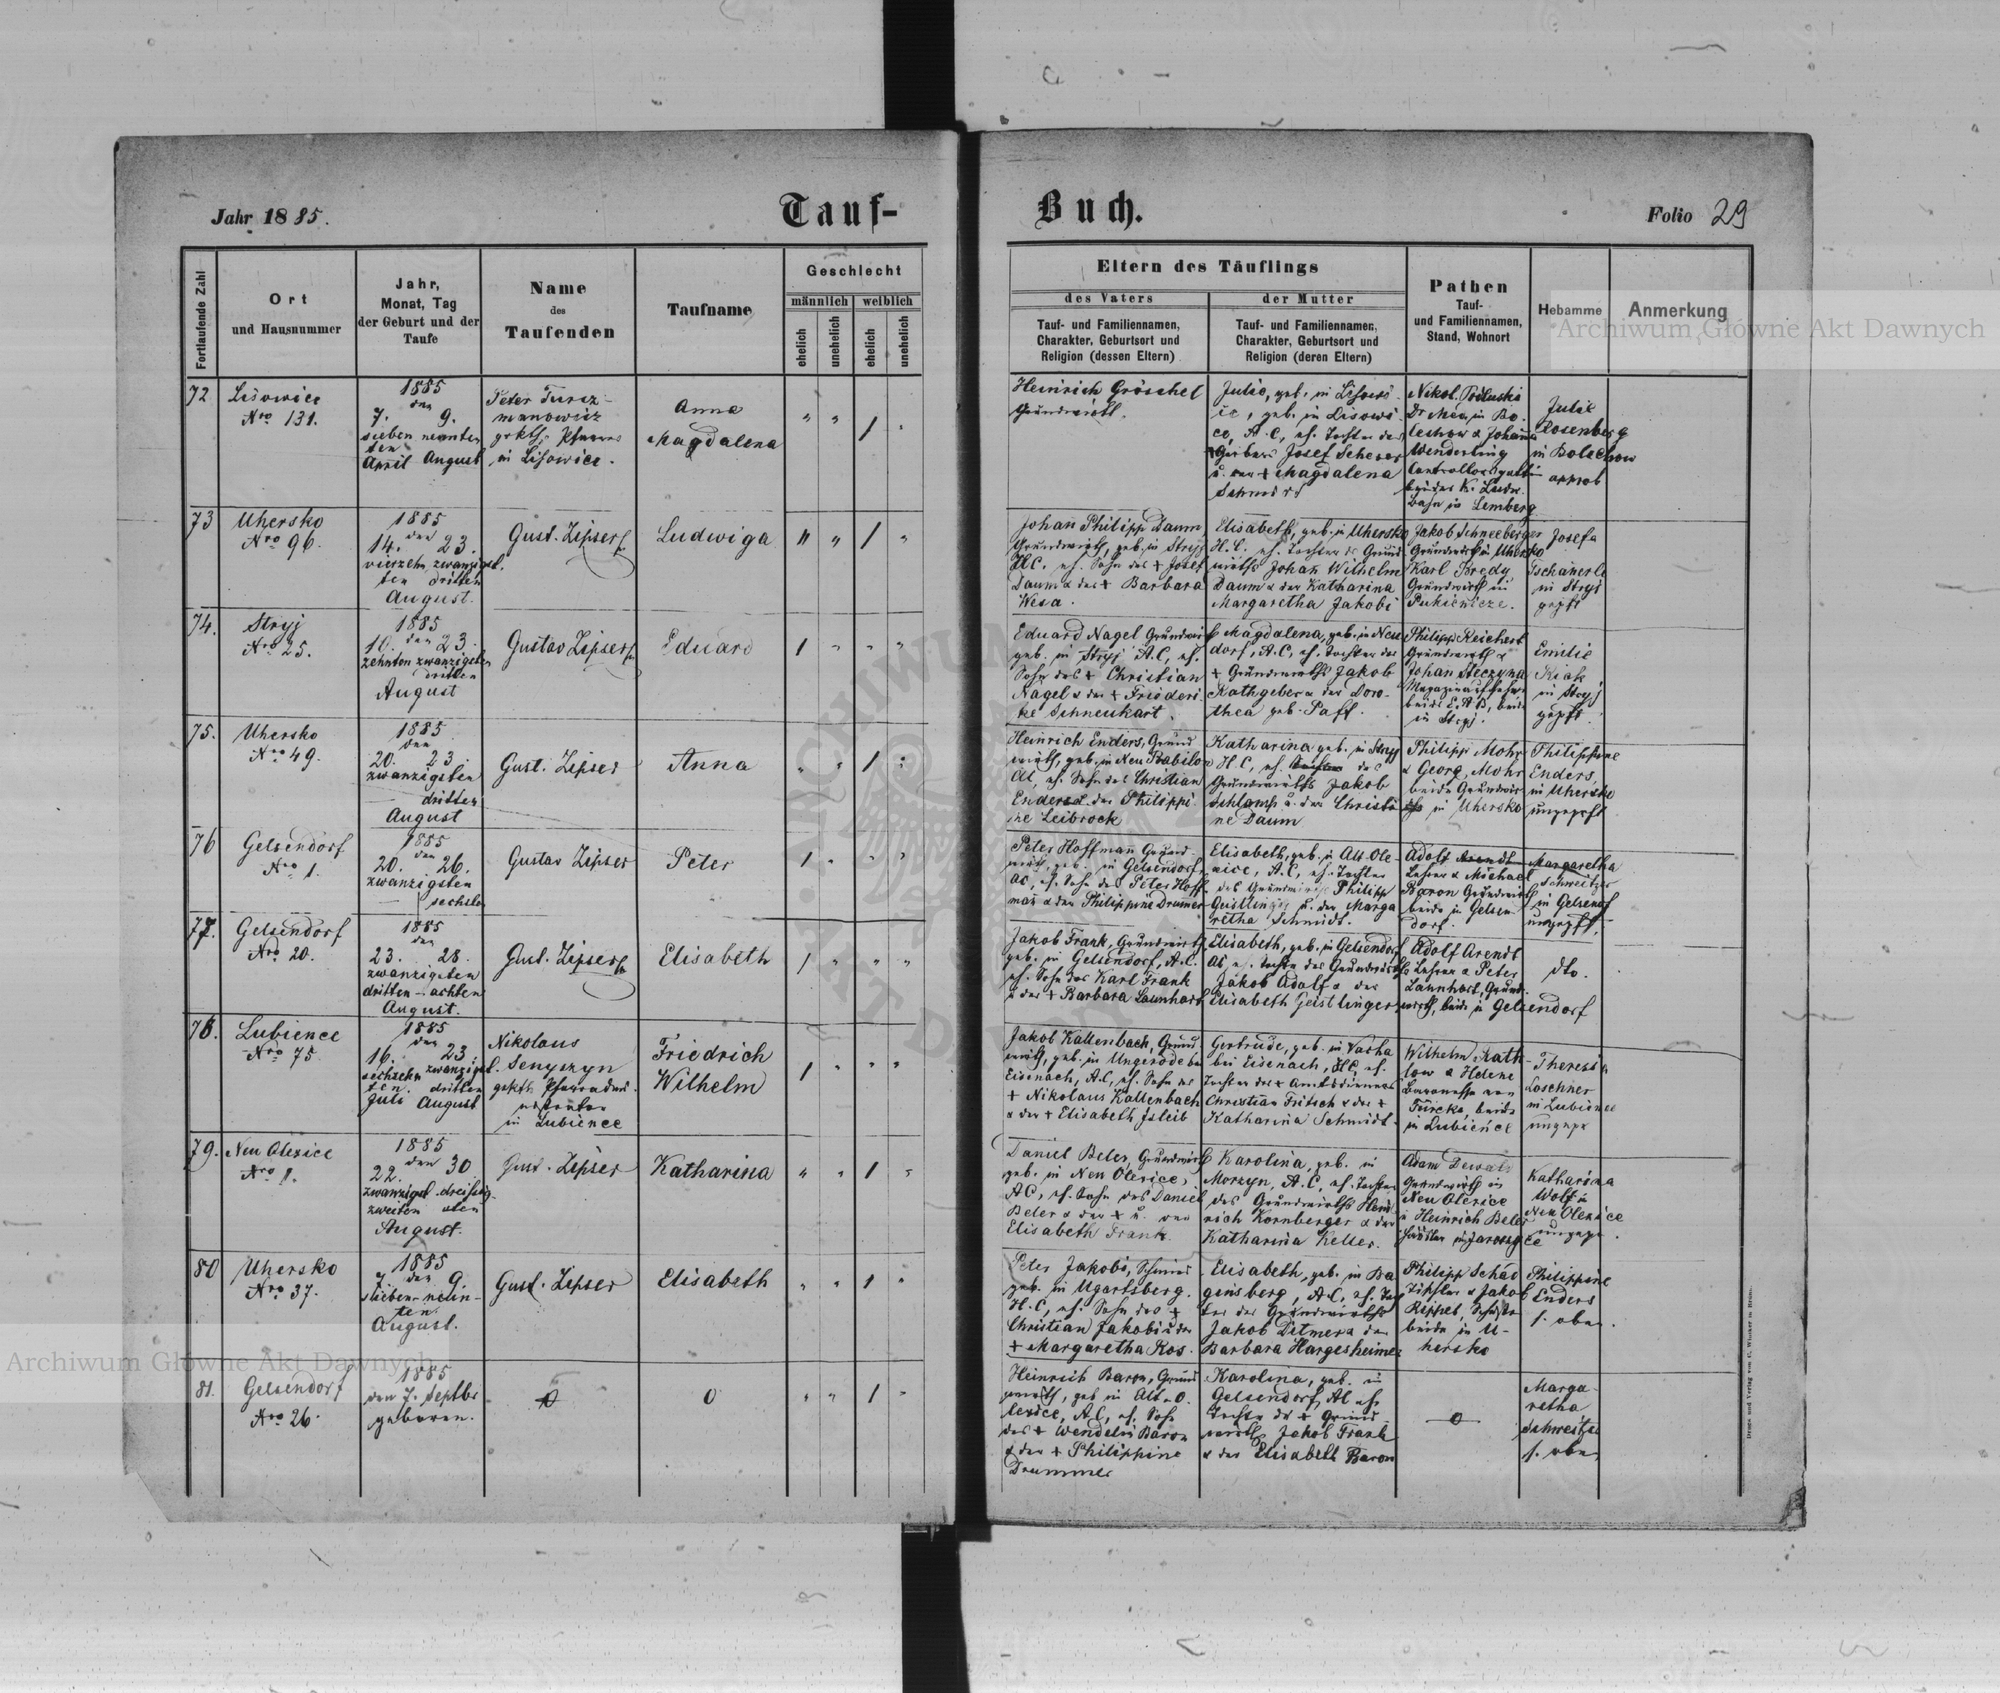 Jahr 1885.
Tauf-
Buch.
Folio 29
Fortlaufende Zahl
Ort
und Hausnummer
Jahr,
Monat, Tag
der Geburt und der
Taufe
Name
des
Taufenden
Taufname
Geschlecht
männlich
weiblich
ehelich
unehelich
ehelich
unehelich
Eltern des Täuflings
des Vaters
der Mutter
Tauf- und Familiennamen,
Charakter, Geburtsort und
Religion (dessen Eltern)
Tauf- und Familiennamen,
Charakter, Geburtsort und
Religion (deren Eltern)
Pathen
Tauf-
und Familiennamen,
Stand, Wohnort
Hebamme
Anmerkung
72
Lisowice
Nro 131.
1885
den
7. 9.
sieben neunten
ten
April August
Peter Turcz-
manowicz
in Lisowice.
Anna
Magdalena
Heinrich Gröschel
Grundwirth.
Julie, geb. in
ce, A.C, eh. Tochter des
Josef Scherer
u. der + Magdalena
Schmidt
in Bo-
lechow & Johanna
Wenderling
Bahn in Lemberg
Julie
Rosenberg
in Bolechow
approb
73
Uhersko
Nro 96.
1885
den
14. 23.
vierzehn zwanzigst.
ten dritten
August.
Gust. Zipser
Ludwiga
Johan Philipp Daum,
Grundwirth, geb. in Stryj
HC. eh. Sohn des + Josef
Daum & der + Barbara
Wesa.
Elisabeth, geb. in Uhersko
H.C. eh. Tochter des Grund-
wirths Johan Wilhelm
Daum & der Katharina
Margaretha Jakobi
Jakob Schneeberger
Grundwirth in Uhersko
Karl Bredy
Grundwirth in
Pukienicze.
Josefa
Tschanerl
in Stryj
gepft
74.
Stryj
Nro 25.
1885
den
10. 23.
zehnten zwanzigsten
dritten
August
Gustav Zipser
Eduard
Eduard Nagel Grundwirth
geb. in Stryj A.C, eh.
Sohn des + Christian
Nagel & der + Friederi-
ke Schneukart.
Magdalena, geb. in Neu
dorf, A.C, eh. Tochter des
+ Grundwirths Jakob
Kathgeber & der Doro-
thea geb. Paff.
Philipp Reichert
Grundwirth &
Johan Steczyna
in Stryj.
Emilie
Kiak
in Stryj
gepft.
75.
Uhersko
Nro 49.
1885
den
20. 23.
zwanzigsten
dritten
August
Gust. Zipser
Anna
Heinrich Enders, Grund
wirth, geb. in Neu Babilon
AC, eh. Sohn des Christian
Enders & der Philippi-
ne Leibrock
Katharina geb. in Stryj
H C, eh. Tochter des
Grundwirths Jakob
Schlamp u. der Christi-
ne Daum
Philipp Mohr
& Georg Mohr
beide Grundwir-
the in Uhersko
Philippine
Enders,
in Uhersko
ungepft
76
Gelsendorf
Nro 1.
1885
den
20. 26.
zwanzigsten
sechsten
Gustav Zipser
Peter
Peter Hoffman Grund-
wirth, geb. in Gelsendorf,
AC, eh. Sohn des Peter Hoff-
man & der Philippine Drumer
Elisabeth, geb. in Alt Ole-
xice, A.C, eh. Tochter
des Grundwirths Philipp
Geistlinger u. der Marga
retha Schmidt.
Adolf Arendt
Lehrer & Michael
Baron Grundwirth
beide in Gelsen-
dorf.
Margaretha
Schweitzer
in Gelsendf
ungepft.
77.
Gelsendorf
Nro 20.
1885
den
23. 28.
zwanzigsten
dritten - achten
August.
Gust. Zipser
Elisabeth
Jakob Frank, Grundwirth
geb. in Gelsendorf, A.C.
eh. Sohn des Karl Frank
& der + Barbara Launhart
Elisabeth, geb. in Gelsendorf
AC, eh. Tochter des Grundwirths
Jakob Adolf & der
Elisabeth Geistlinger,
Adolf Arendt
Lehrer & Peter
Launhart, Grund-
wirth, beide in Gelsendorf
dto.
78.
Lubience
Nro 75.
1885
den
16. 23.
sechzehn zwanzigst.
ten. dritten
Juli August
Nikolaus
Senyszyn
in Lubience
Friedrich
Wilhelm
Jakob Kallenbach, Grund
wirth, geb. in Ungerode bei
Eisenach, A.C, eh. Sohn des
+ Nikolaus Kallenbach
& der + Elisabeth Isleib
Gertrude, geb. in Vacha
bei Eisenach, HC, eh.
Tochter des + Amtsdieners
Christian Fritsch & der +
Katharina Schmidt.
Wilhelm Kath-
low & Helene
Baronesse von
Türcke, beide
in Lubience
Theresia
Loschner
in Lubience
ungepr
79.
Neu Olexice
Nro 1.
1885
den
22. 30
zwanzigst. dreissig-
zweiten sten
August.
Gust. Zipser
Katharina
Daniel Beler, Grundwirth
geb. in Neu Olexice,
AC, eh. Sohn des Daniel
Beler & der
Elisabeth Frank.
Karolina, geb. in
Morzyn, A.C, eh. Tochter
des Grundwirths Hein-
rich Kornberger & der
Katharina Keller.
Adam Dewald
Grundwirth in
Neu Olexice
& Heinrich Beler
Katharina
Wolf in
Neu Olexice
ungepr.
80
Uhersko
Nro 37.
1885
den
7. 9.
sieben - neun-
ten.
August.
Gust. Zipser
Elisabeth
Peter Jakobi, Schmied
geb. in Ugartsberg.
H.C, eh. Sohn des +
Christian Jakobi & der
+ Margaretha Ros.
Elisabeth, geb. in Ba
ginsberg, A.C, eh. Toch
ter des Grundwirths
Jakob Ditmer & der
Barbara Hargesheimer
Philipp Schäd
Tischler & Jakob
Rippel, Schuster
beide in U-
hersko
Philippine
Enders
s. oben.
81.
Gelsendorf
Nro 26.
1885
den 7. Septbr
geboren.
0
0
Heinrich Baron, Grund
wirth, geb in Alt-O-
lexice, A.C, eh. Sohn
des + Wendelin Baron
& der + Philippine
Drummer
Karolina, geb. in
Gelsendorf, AC eh.
Tochter des + Grund-
wirth Jakob Frank
& der Elisabeth Baron
0
Marga-
retha
Schweitzer
s. oben
Druck und Verlag von C. Winiker in Brünn.
Archiwum Główne Akt Dawnych
Archiwum Główne Akt Dawnych